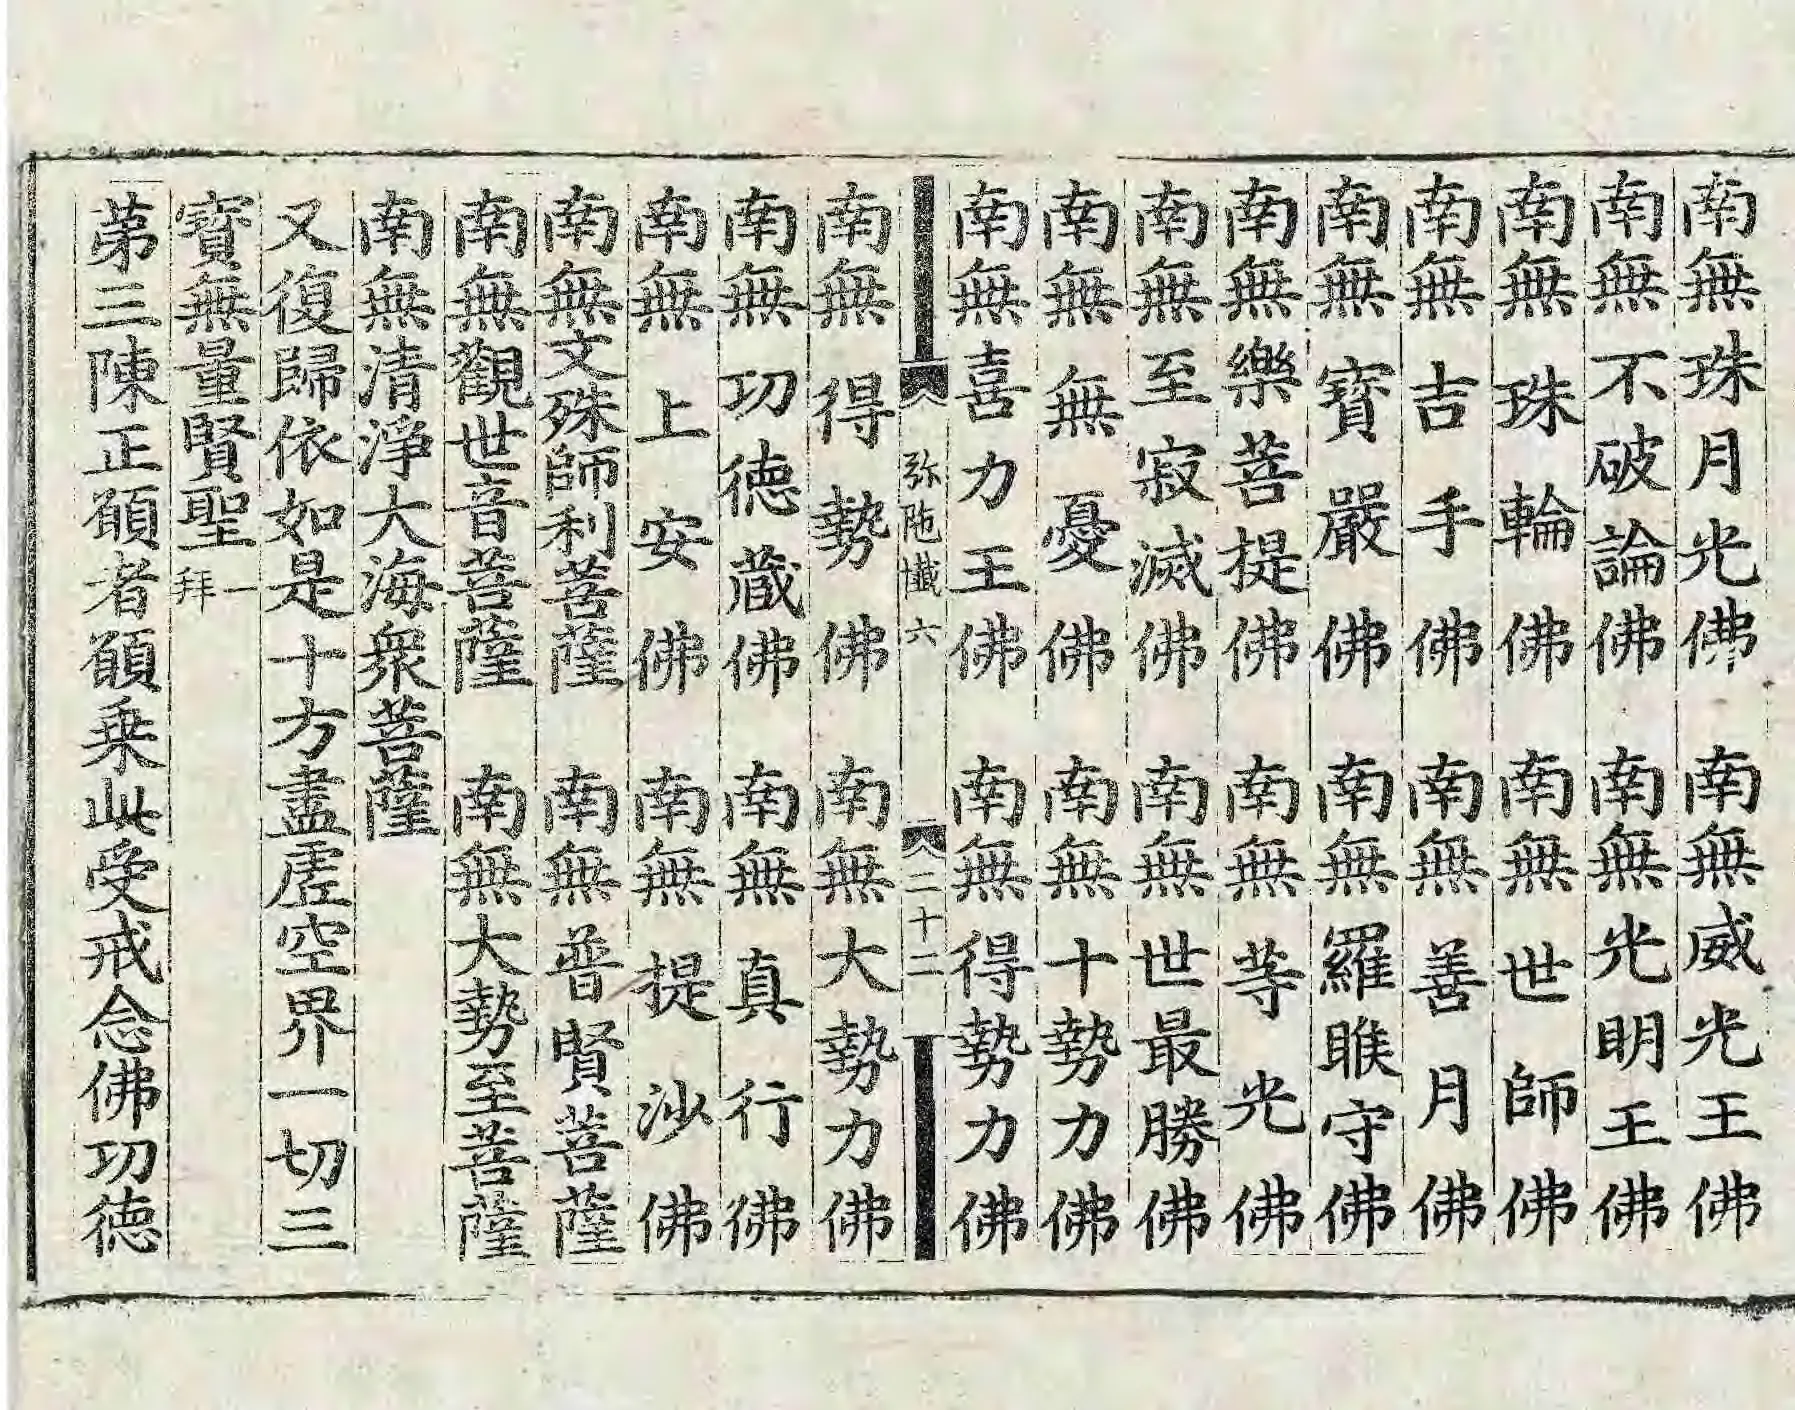 南無珠月光佛　南無威光王佛
南無不破論佛　南無光明王佛
南無珠輪佛　南無世師佛
南無吉手佛　南無善月佛
南無寶嚴佛　南無羅睺守佛
南無樂菩提佛　南無等光佛
南無至寂滅佛　南無世最勝佛
南無無憂佛　南無十勢力佛
南無喜力王佛　南無得勢力佛
弥陁懺六　二十二
南無得勢佛　南無大勢力佛
南無功德藏佛　南無真行佛
南無上安佛　南無提沙佛
南無文殊師利菩薩　南無普賢菩薩
南無觀世音菩薩　南無大勢至菩薩
南無清淨大海衆菩薩
又復歸依如是十方盡虛空界一切三
寶無量賢聖一拜
苐三陳正願者願乗此受戒念佛功德